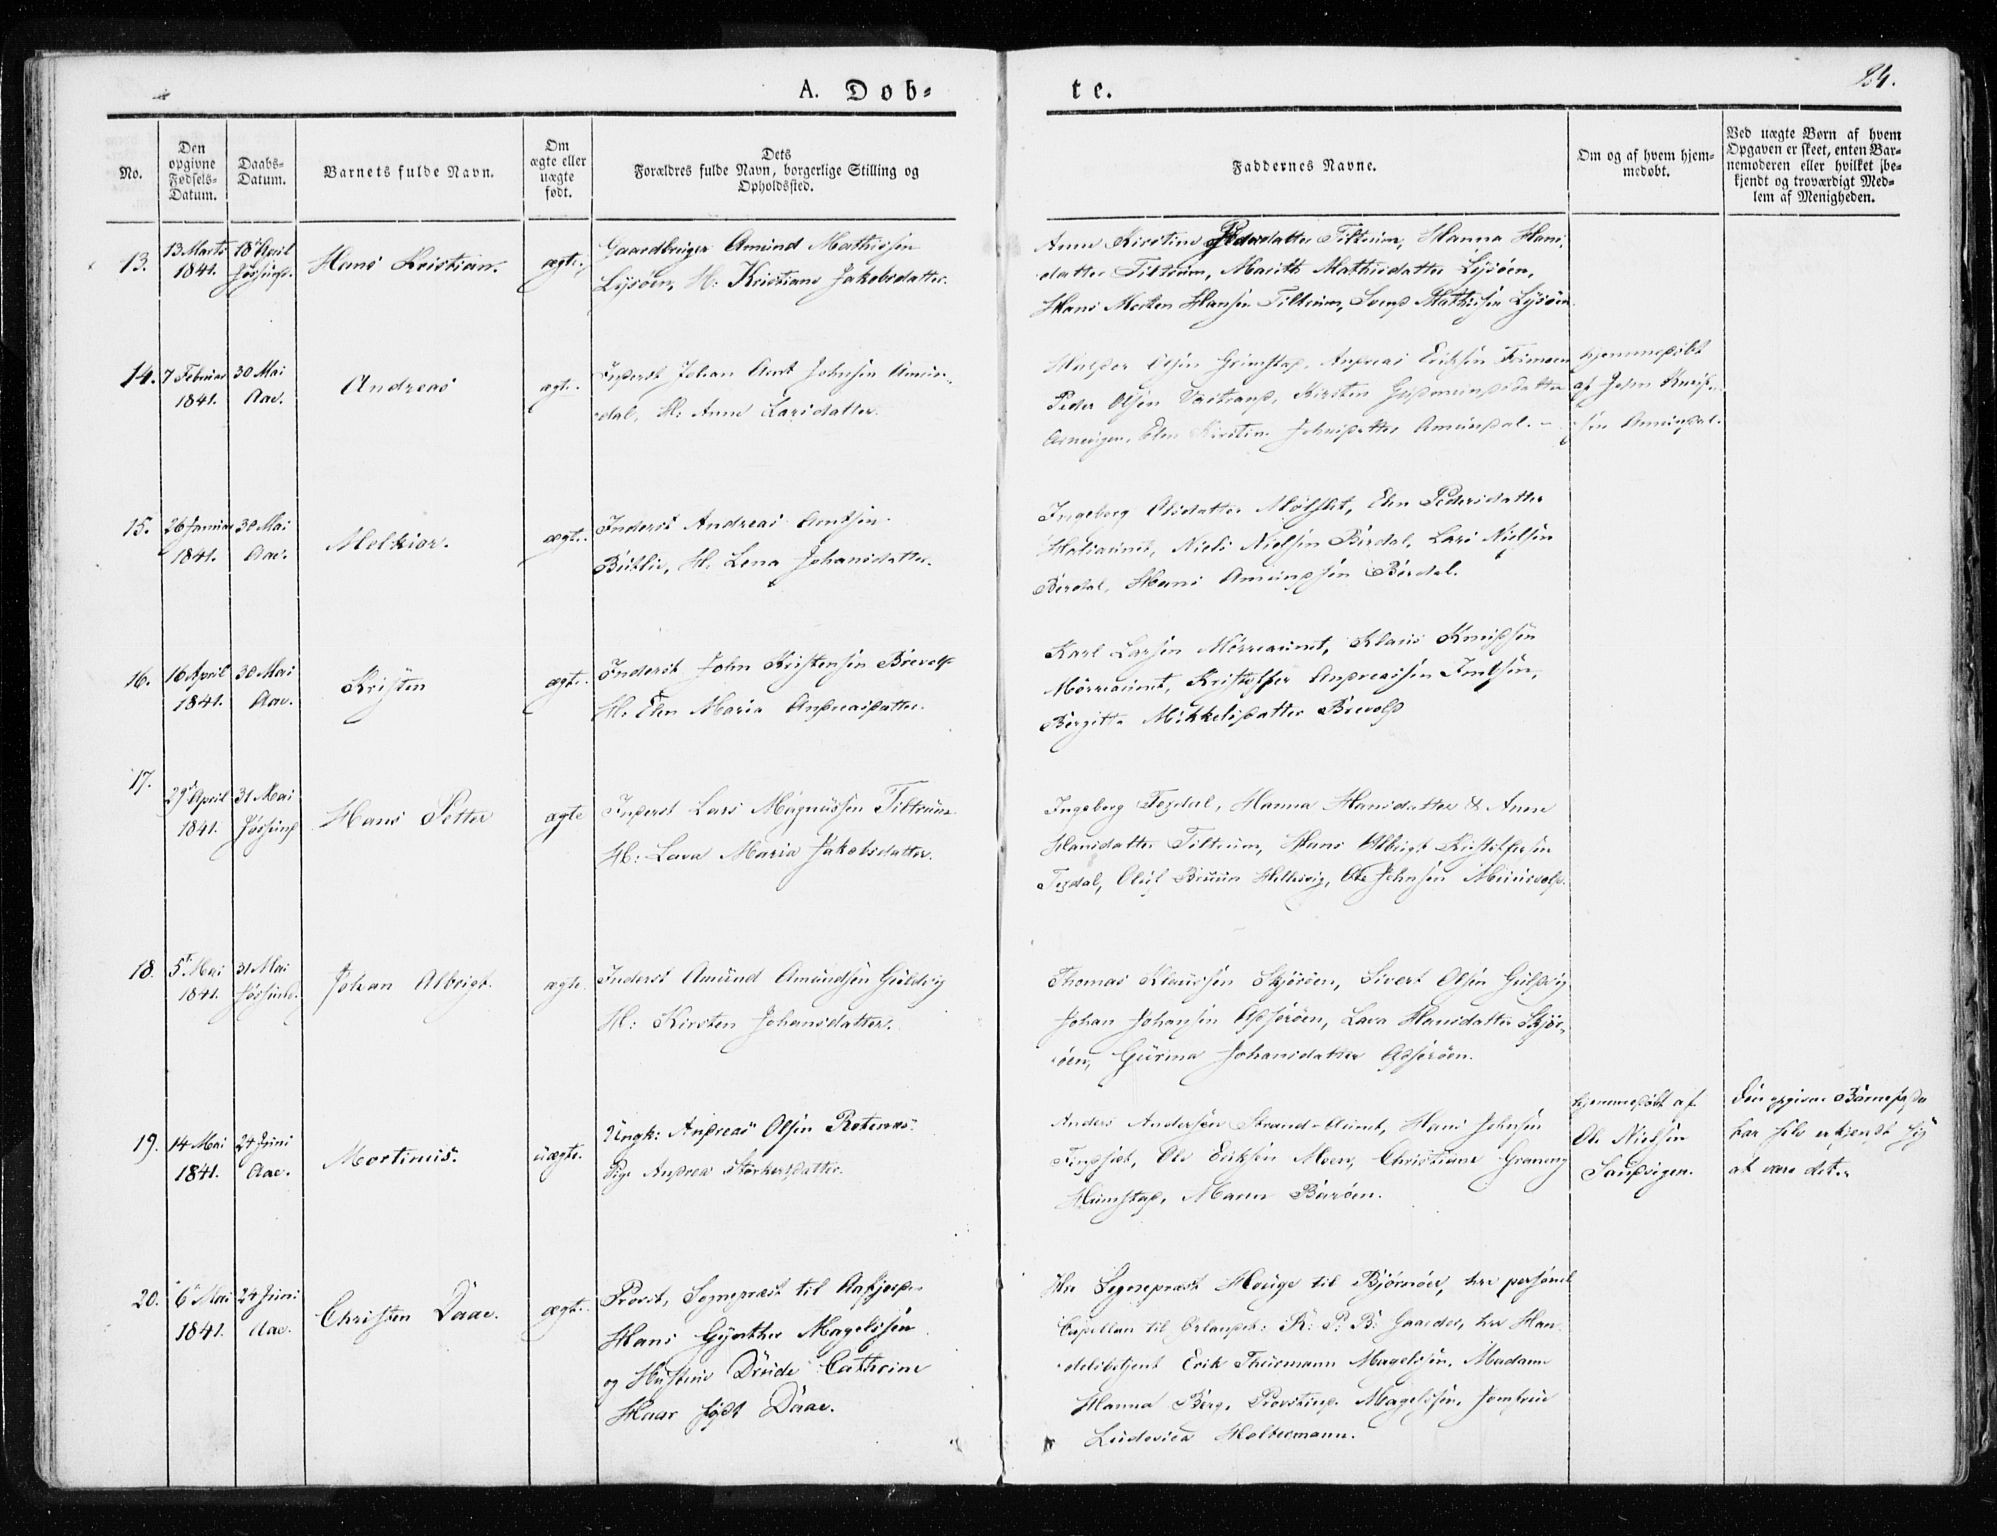 A. Døb-
te.
84.
No.
Den opgivne Fødsels-Datum.
Daabs-Datum.
Barnets fulde Navn.
Om ægte eller uægte født.
Dets
Forældres fulde Navn, borgerlige Stilling og
Opholdssted.
Faddernes Navne.
Om og af hvem hjem-
medøbt.
Ved uægte Børn af hvem
Opgaven er skeet, enten Bar-
nemoderen eller hvilket be-
kjendt og troværdigt Med-
lem af Menigheden.
13. 13 Marts 1841. 18 April Jøssund. Hans Kristian. ægte.
Gaardbruger Amund Mathissen
Lysøen, H: Kristiane Jakobsdatter.
Anne Kirstine Pedersdatter Tiltrum, Hanna Hans-
datter Tiltrum, Marith Mathisdatter Lysøen,
Hans Morten Hansen Tiltrum, Svend Mathissen Lysøen
14. 7 Februar 1841. 30 Mai Aae. Andreas ægte.
Inderst Johan Arnt Johnsen Amun-
dal, H: Anne Larsdatter.
Olsen Grimstad, Andreas Eriksen
Peder Olsen Kirsten datter
Elen Kirstine Johnsdatter Amundal.
hjemmedøbt
af John
sen Amundal.
15. 26 Januar 1841. 30 Mai Aae. Melkior. ægte.
Inderst Andreas Arntsen
H. Lena Johansdatter.
Ingeborg Olsdatter Elen Pedersdatter
Niels Nielsen Berdal, Lars Nielsen
Berdal, Hans Amundsen Berdal.
16. 16 April 1841. 30 Mai Aae. Kristen ægte.
Inderst John Kristensen Brevold
H. Elen Maria Andreasdatter.
Karl Larsen Mørreaunet, Klaus Knudsen
Mørreaunet, Kristoffer Andreassen
Birgitte Mikkelsdatter Brevold
17. 29 April 1841. 31 Mai Jøssund Hans Petter ægte
Inderst Lars Magnussen Tiltrum
H: Lava Maria Jakobsdatter.
Ingeborg Hanna Hansdatter & Anne
Hansdatter Tiltrum, Hans Albrigt Kristoffersen
Oluf Bruun Hellesvig, Ole Johnsen
18. 5 Mai 1841. 31 Mai Jøssund. Johan Albrigt. ægte.
Inderst Amund Amundsen Guldvig
H: Kirsten Johansdatter.
Thomas Klaussen Skjørøen, Sivert Olsen Guldvig
Johan Johansen Lava Hansdatter Skjør-
øen, Gurina Johansdatter
19. 14 Mai 1841. 24 Juni Aae. Mortinus. uægte.
Ungk: Andreas Olsen
Pige Andrea Størkersdatter.
Anders Andersen Strand Hans Johnsen
Ole Eriksen Moen, Christiane
Humstad, Maren
hjemmedøbt af
Ole Nielsen
Sandvigen.
Den opgivne Barnefader
har selv erkjendt sig
at være det.
20. 6 Mai 1841. 24 Juni Aae. Christen Daae. ægte.
Provst, Sognepræst til Aafjord
Hans Gynther Magelssen
og Hustrue Drude Cathrine
Haar født Daae.
Hr Sognepræst Hauge til Bjørnøer, hr personel
Capellan til Ørlandet: K: P. B: Gaarder, hr Han-
delsbetjent Erik Thurmann Magelssen, Madame
Hanna Berg, Provstinde Magelssen, Jomfrue
Ludovica Holtermann.